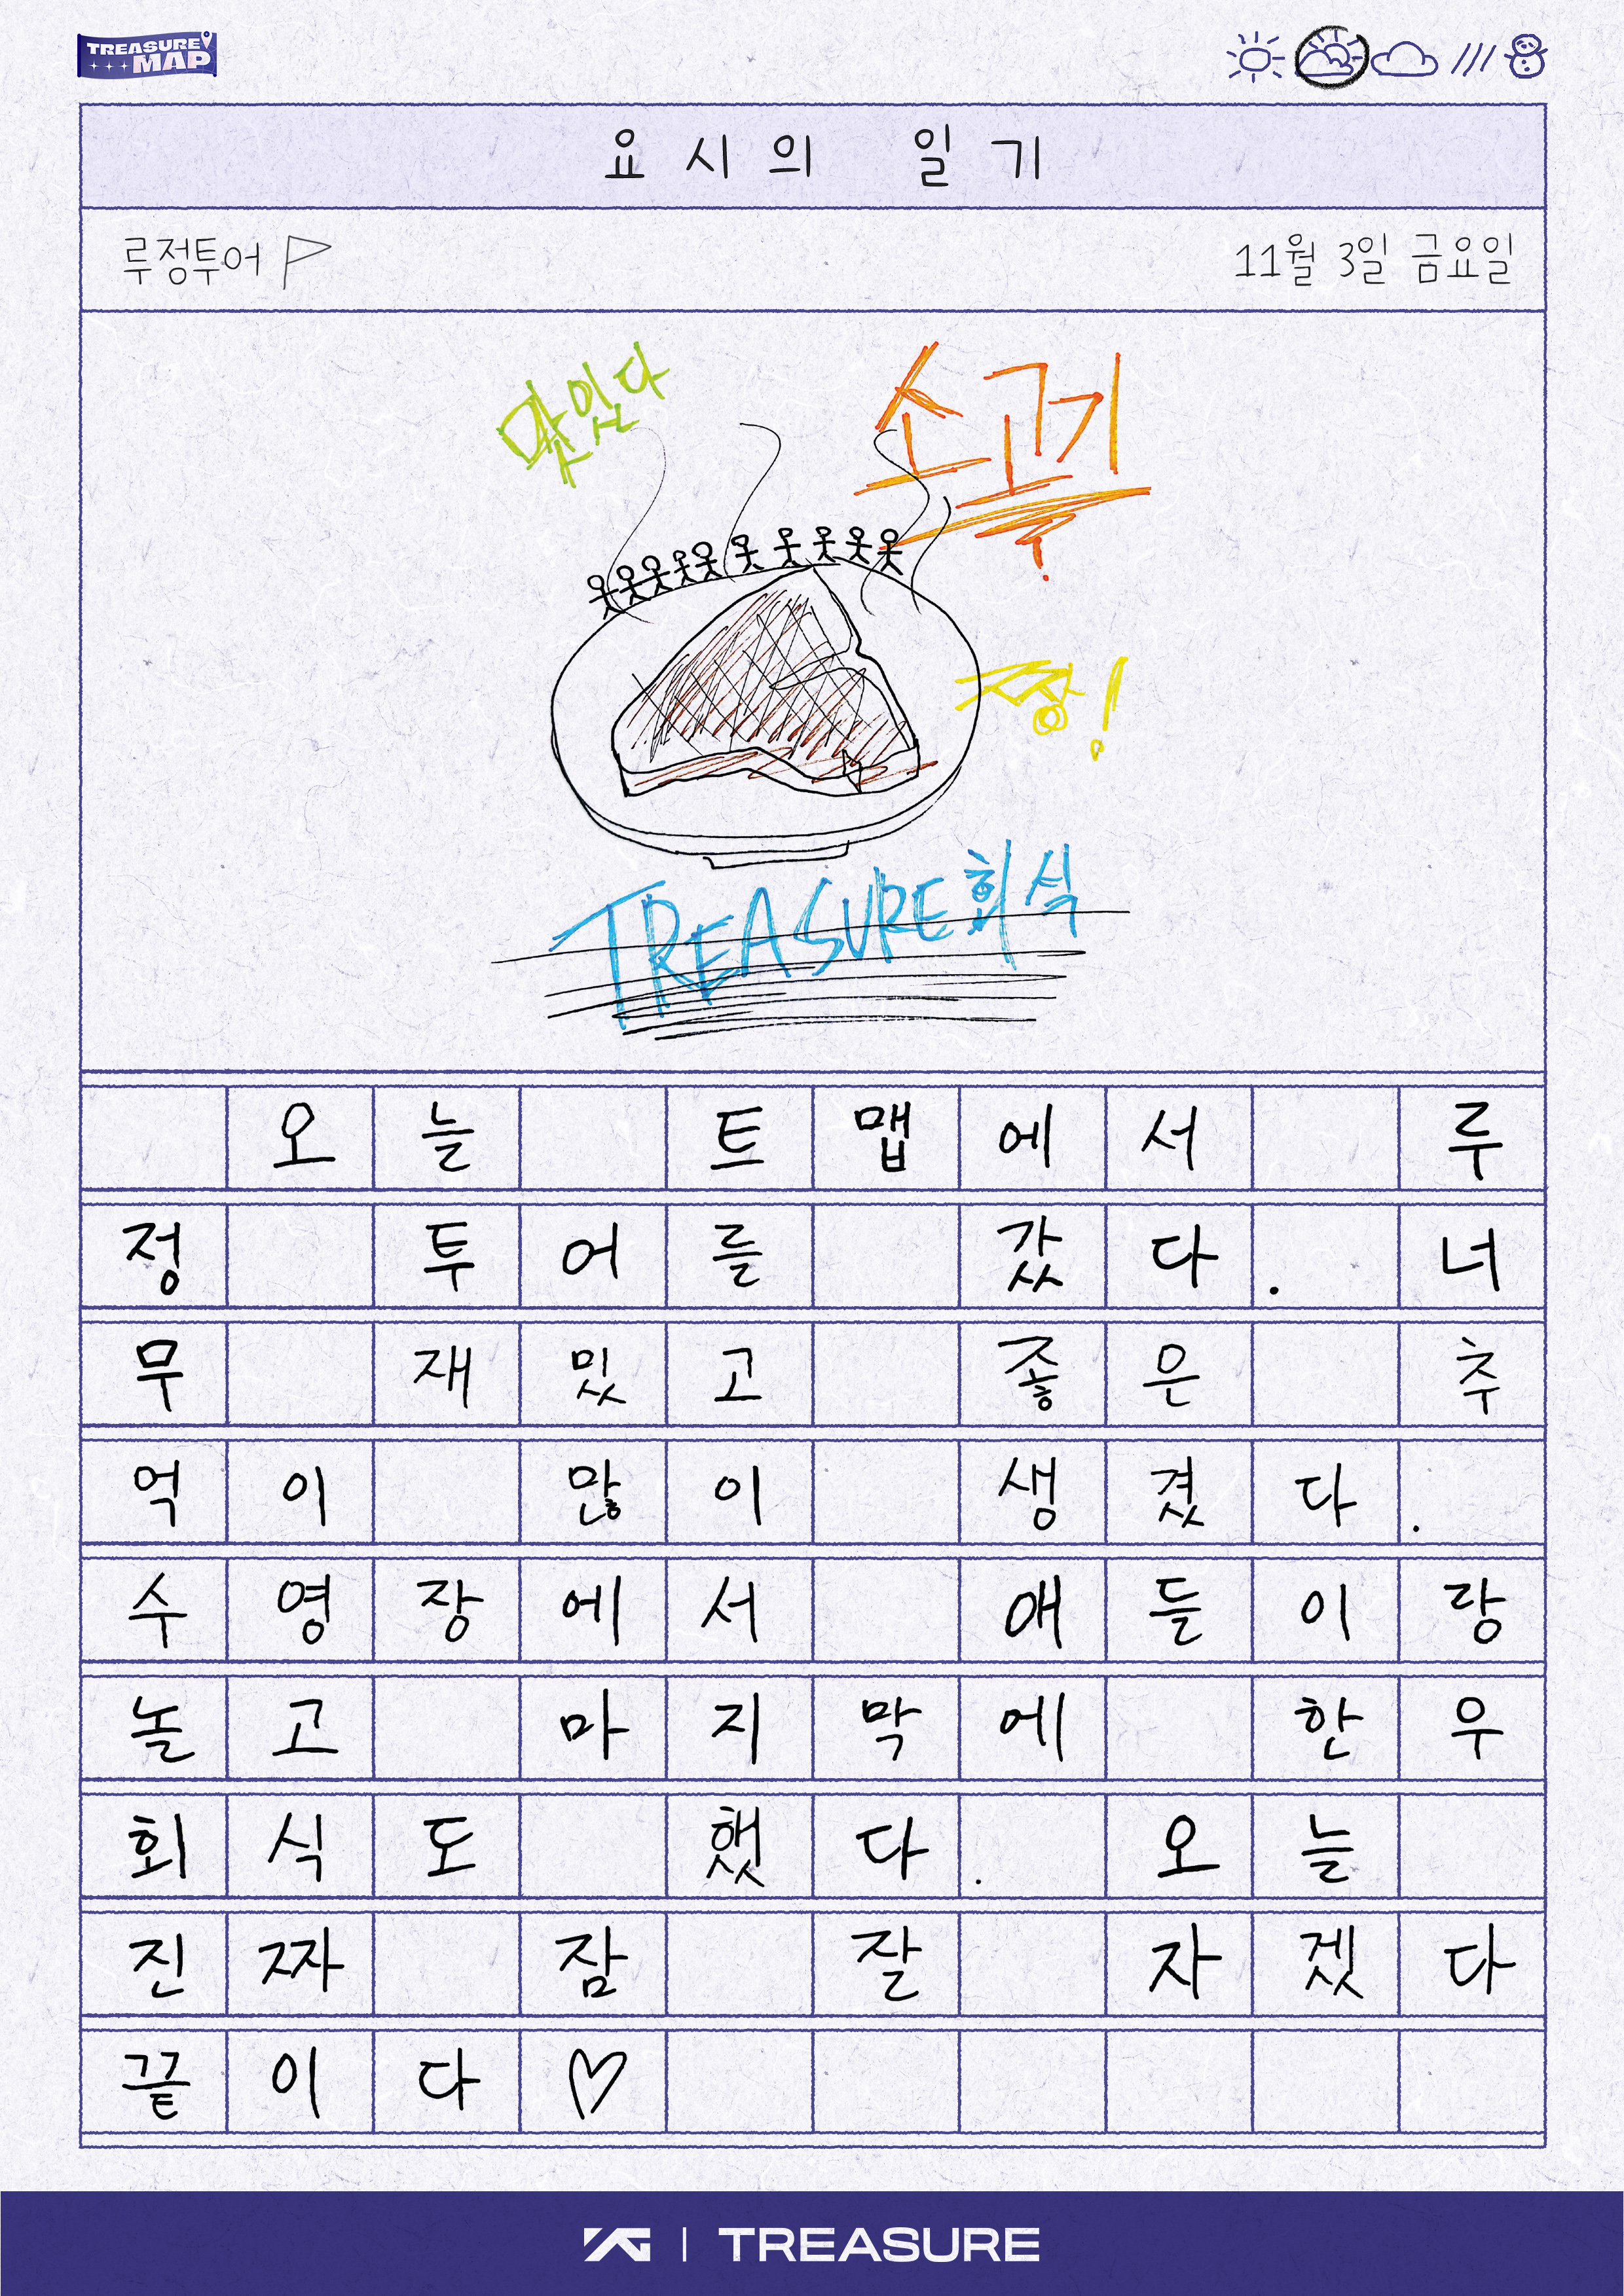 TREASURE
MAP
요시의 일기
루정투어
11월 3일 금요일
맛있다
소고기
짱!
TREASURE 회식
오늘 트맵에서 루
정 투어를 갔다. 너
무 재밌고 좋은 추
억이 많이 생겼다.
수영장에서 애들이랑
놀고 마지막에 한우
회식도 했다. 오늘
진짜 잠 잘 자겠다
끝이다♡
YG | TREASURE